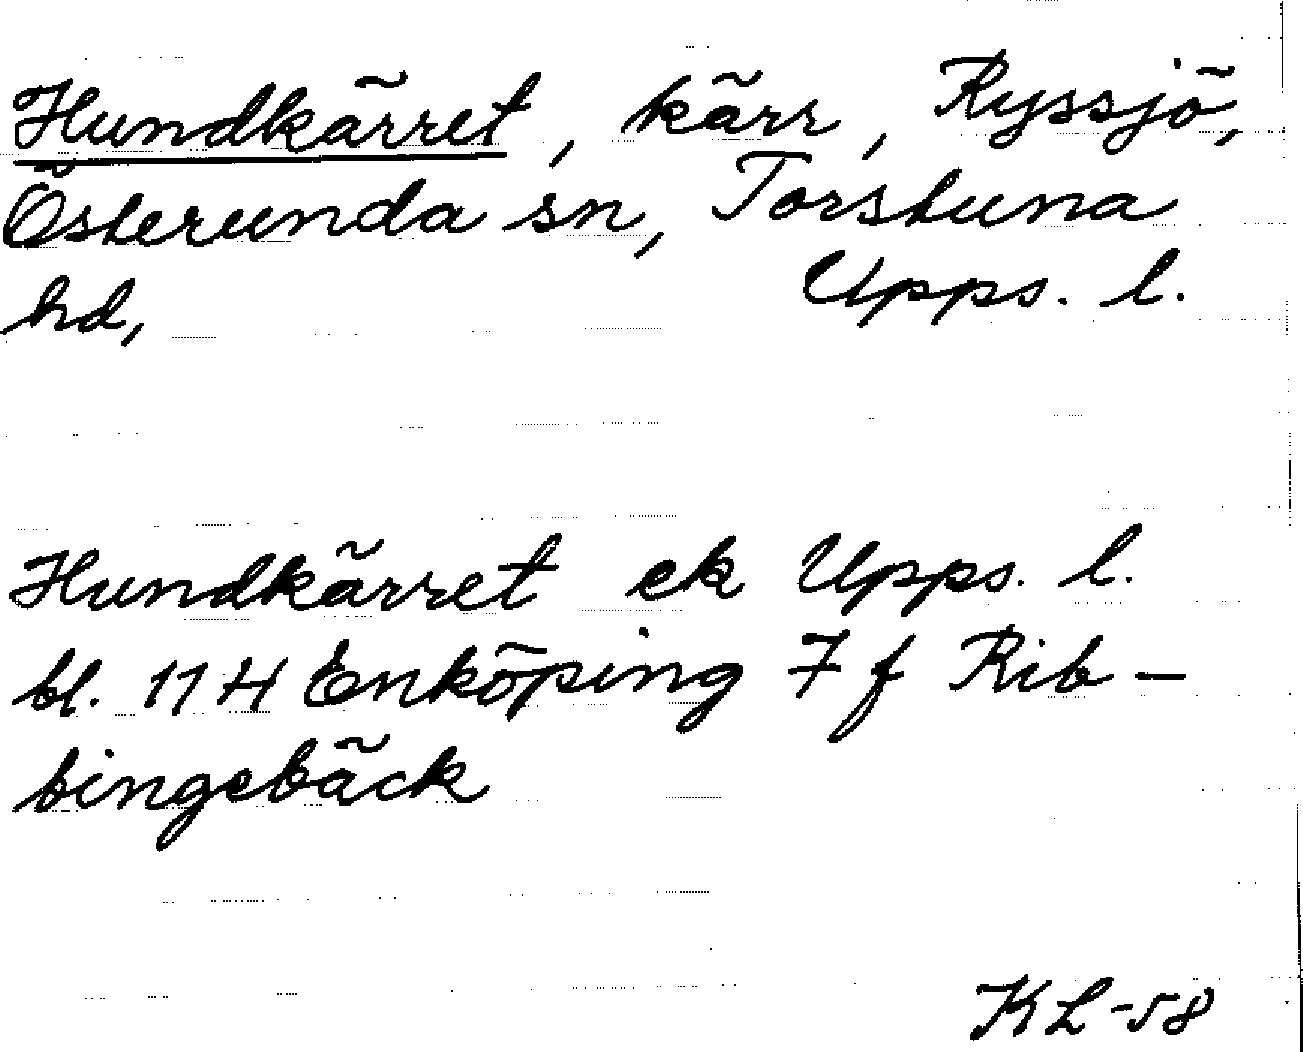 Hundkärret, kärr, Ryssjö,
Österunda sn, Torstuna
hd, Upps. l.
Hundkärret ek Upps. l.
bl. 11 H Enköping 7 f Rib-
bingebäck
KL-58